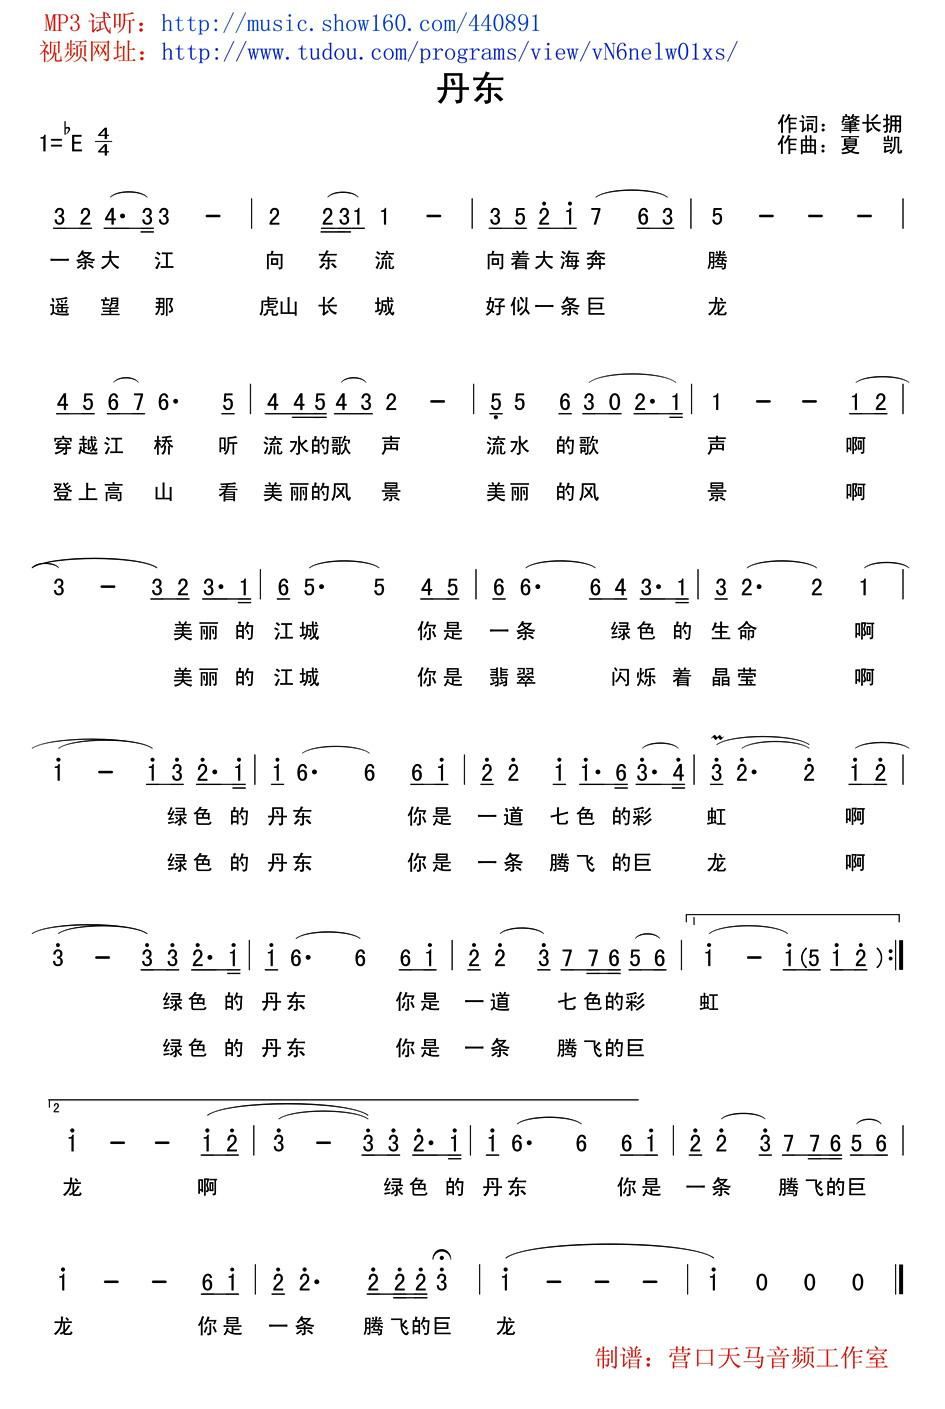 MP3 试听：http://music.show160.com/440891
视频网址：http://www.tudou.com/programs/view/vN6nelw01xs/
丹东
1=♭E 4/4
作词：肇长拥
作曲：夏 凯
3 2 4· 3 3 － | 2 2 3 1 1 － | 3 5 2̇ 1̇ 7 6 3 | 5 － － － |
一条大 江 向 东 流 向着大海奔 腾
遥 望 那 虎山 长 城 好似一条巨 龙
4 5 6 7 6· 5 | 4 4 5 4 3 2 － | 5̣ 5 6 3 0 2· 1 | 1 － － 1 2 |
穿越江 桥 听 流水的歌 声 流水 的歌 声 啊
登上高 山 看 美丽的风 景 美丽 的风 景 啊
3 － 3 2 3· 1 | 6 5· 5 4 5 | 6 6· 6 4 3· 1 | 3 2· 2 1 |
美丽 的 江城 你是 一条 绿色 的 生命 啊
美丽 的 江城 你是 翡翠 闪烁 着 晶莹 啊
1̇ － 1̇ 3̇ 2̇· 1̇ | 1̇ 6· 6 6 1̇ | 2̇ 2̇ 1̇ 1̇· 6 3̇· 4̇ | 3̇ 2̇· 2̇ 1̇ 2̇ |
绿色 的 丹东 你是 一道 七色 的彩 虹 啊
绿色 的 丹东 你是 一条 腾飞 的巨 龙 啊
3̇ － 3̇ 3̇ 2̇· 1̇ | 1̇ 6· 6 6 1̇ | 2̇ 2̇ 3̇ 7 7 6 5 6 | 1 1̇ － 1̇ (5 1̇ 2̇ ) :‖
绿色 的 丹东 你是 一道 七色的彩 虹
绿色 的 丹东 你是 一条 腾飞的巨
2 1̇ － － 1̇ 2̇ | 3̇ － 3̇ 3̇ 2̇· 1̇ | 1̇ 6· 6 6 1̇ | 2̇ 2̇ 3̇ 7 7 6 5 6 |
龙 啊 绿色 的 丹东 你是 一条 腾飞的巨
1̇ － － 6 1̇ | 2̇ 2̇· 2̇ 2̇ 2̇ 3̇ | 1̇ － － － | 1̇ 0 0 0 ‖
龙 你是 一条 腾飞的巨 龙
制谱：营口天马音频工作室